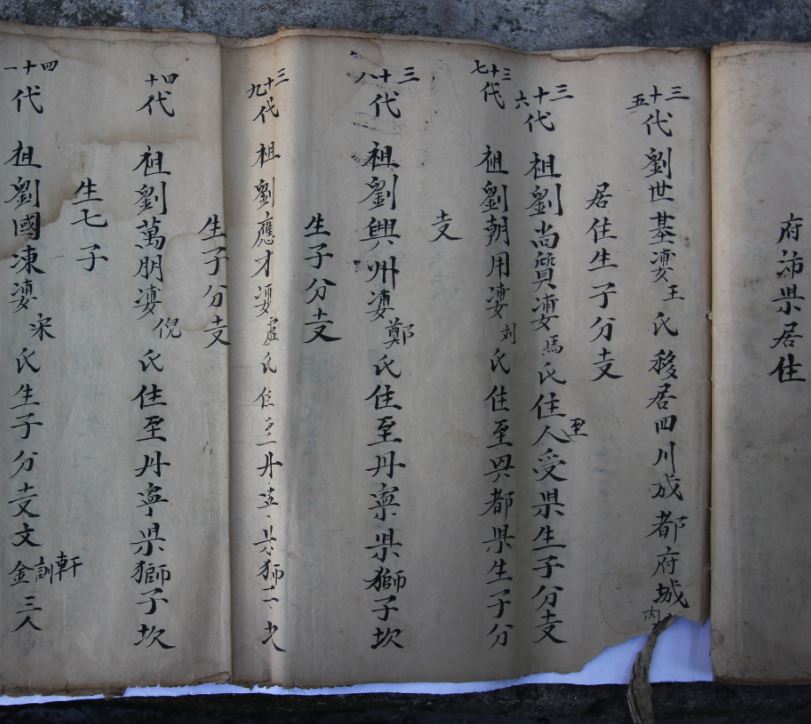 府沛県居住
三十五代劉世基娶王氏移居四川成都府城内
居住生子分支
三十六代祖劉尚質娶馬氏住至人受県生子分支
三十七代祖劉朝用娶刘氏住至興都県生子分
支
三十八代祖劉興州娶鄭氏住至丹寧県獅子坎
生子分支
三十九代祖劉應才娶盧氏住至丹寧県獅子坎
生子分支
四十代祖劉萬朋娶倪氏住至丹寧県獅子坎
生七子
四十一代祖劉國凍娶宋氏生子分支文軒訓金三人